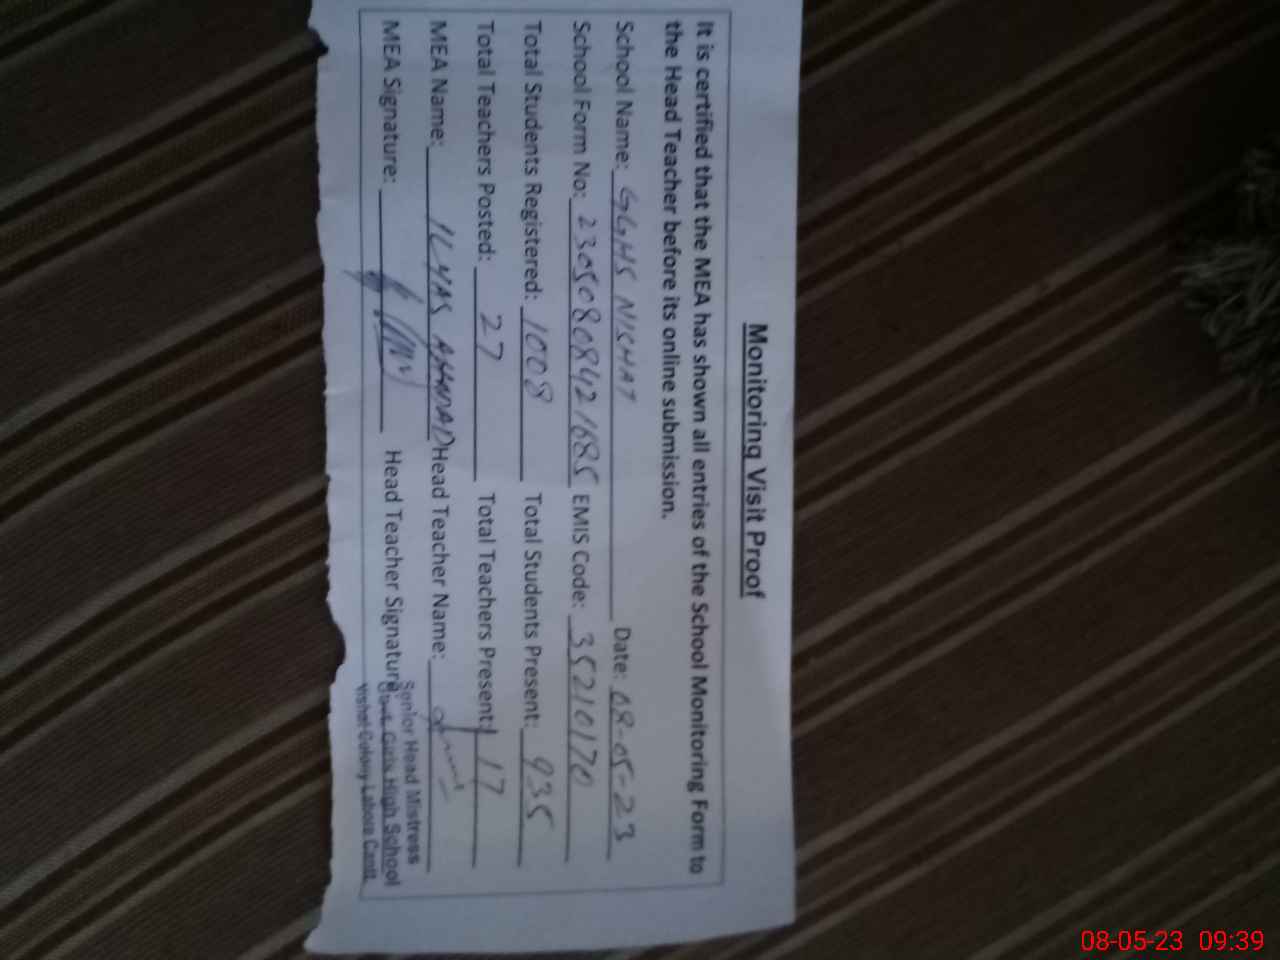 Monitoring Visit Proof
It is certified that the MEA has shown all entries of the School Monitoring Form to
the Head Teacher before its online submission.
School Name: GGHS NISHAT Date: 08-05-23
School Form No: 23050808421685 EMIS Code: 35210170
Total Students Registered: 1008 Total Students Present: 935
Total Teachers Posted: 27 Total Teachers Present: 17
MEA Name: ILYAS AHMAD Head Teacher Name:
MEA Signature: Head Teacher Signature:
Senior Head Mistress
Govt. Girls High School
Colony Lahore Cantt.
08-05-23 09:39